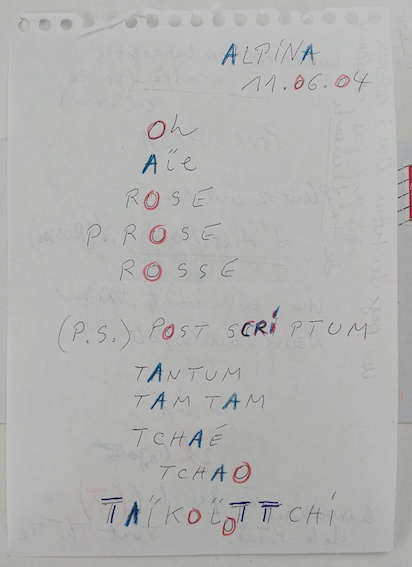 ALPINA
11.06.04
Oh
Aïe
ROSE
P. ROSE
ROSSE
(P.S.) POST SCRIPTUM
TANTUM
TAM TAM
TCHAÉ
TCHAO